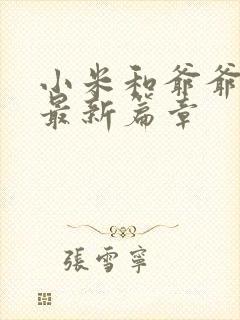 小米和爷爷
最新篇章
張雪寧